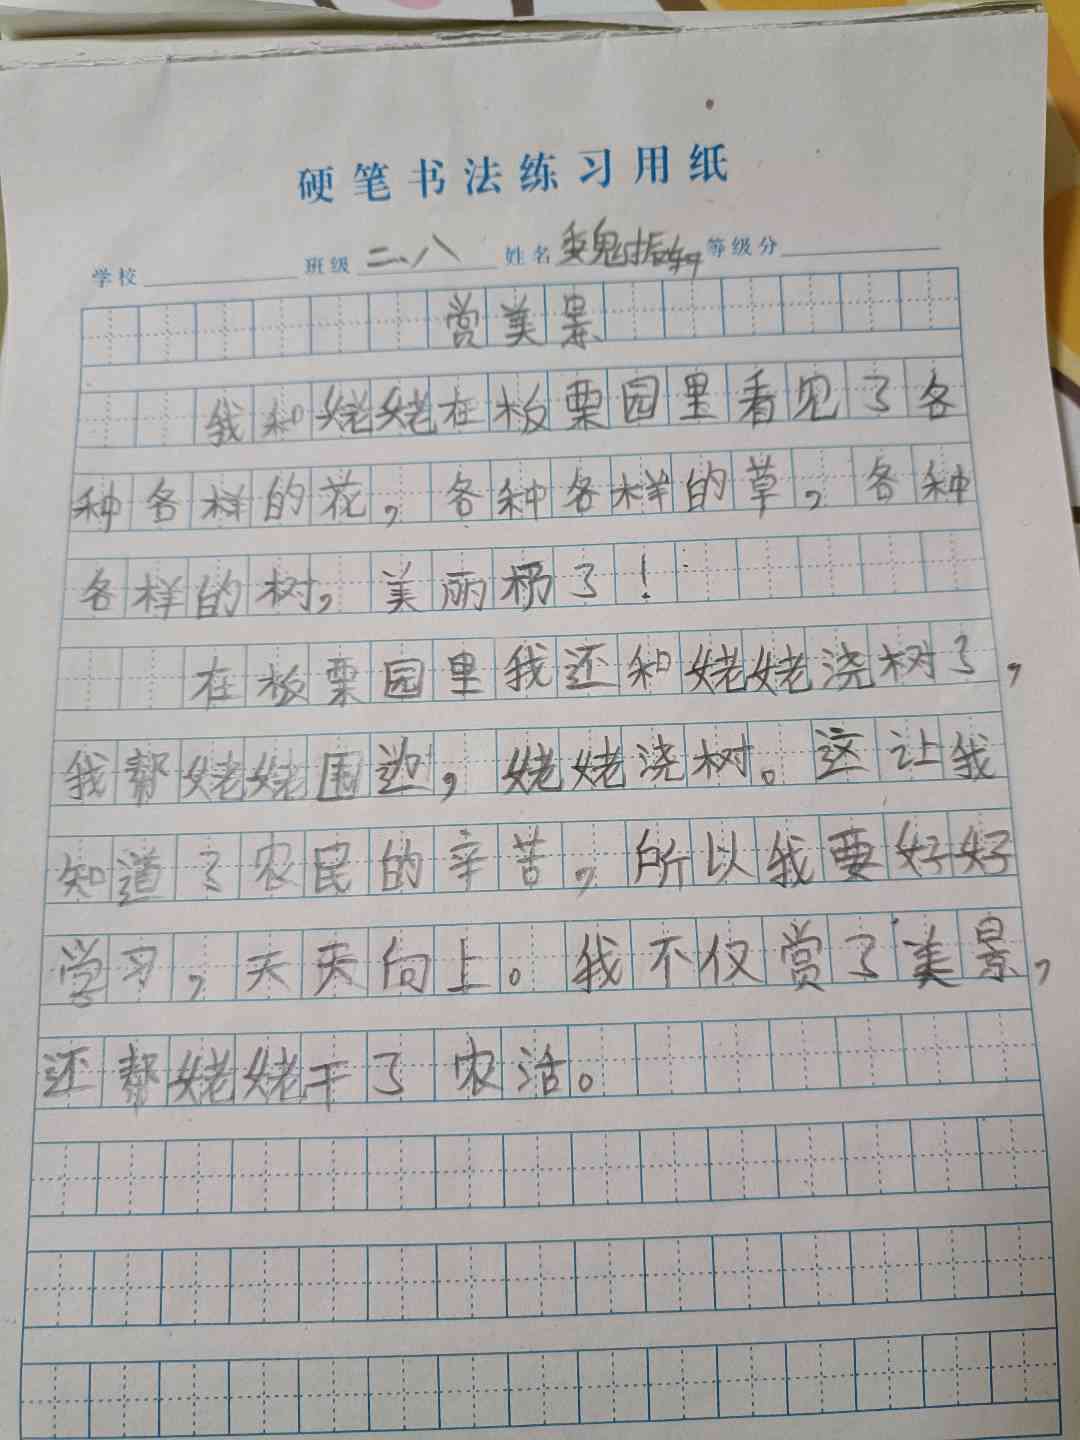 硬笔书法练习用纸
学校 班级 二、八 姓名 魏振 等级分
赏美景
我和姥姥在板栗园里看见了各
种各样的花，各种各样的草，各种
各样的树，美丽极了！
在板栗园里我还和姥姥浇树了，
我帮姥姥围边，姥姥浇树。这让我
知道了农民的辛苦，所以我要好好
学习，天天向上。我不仅赏了美景，
还帮姥姥干了农活。